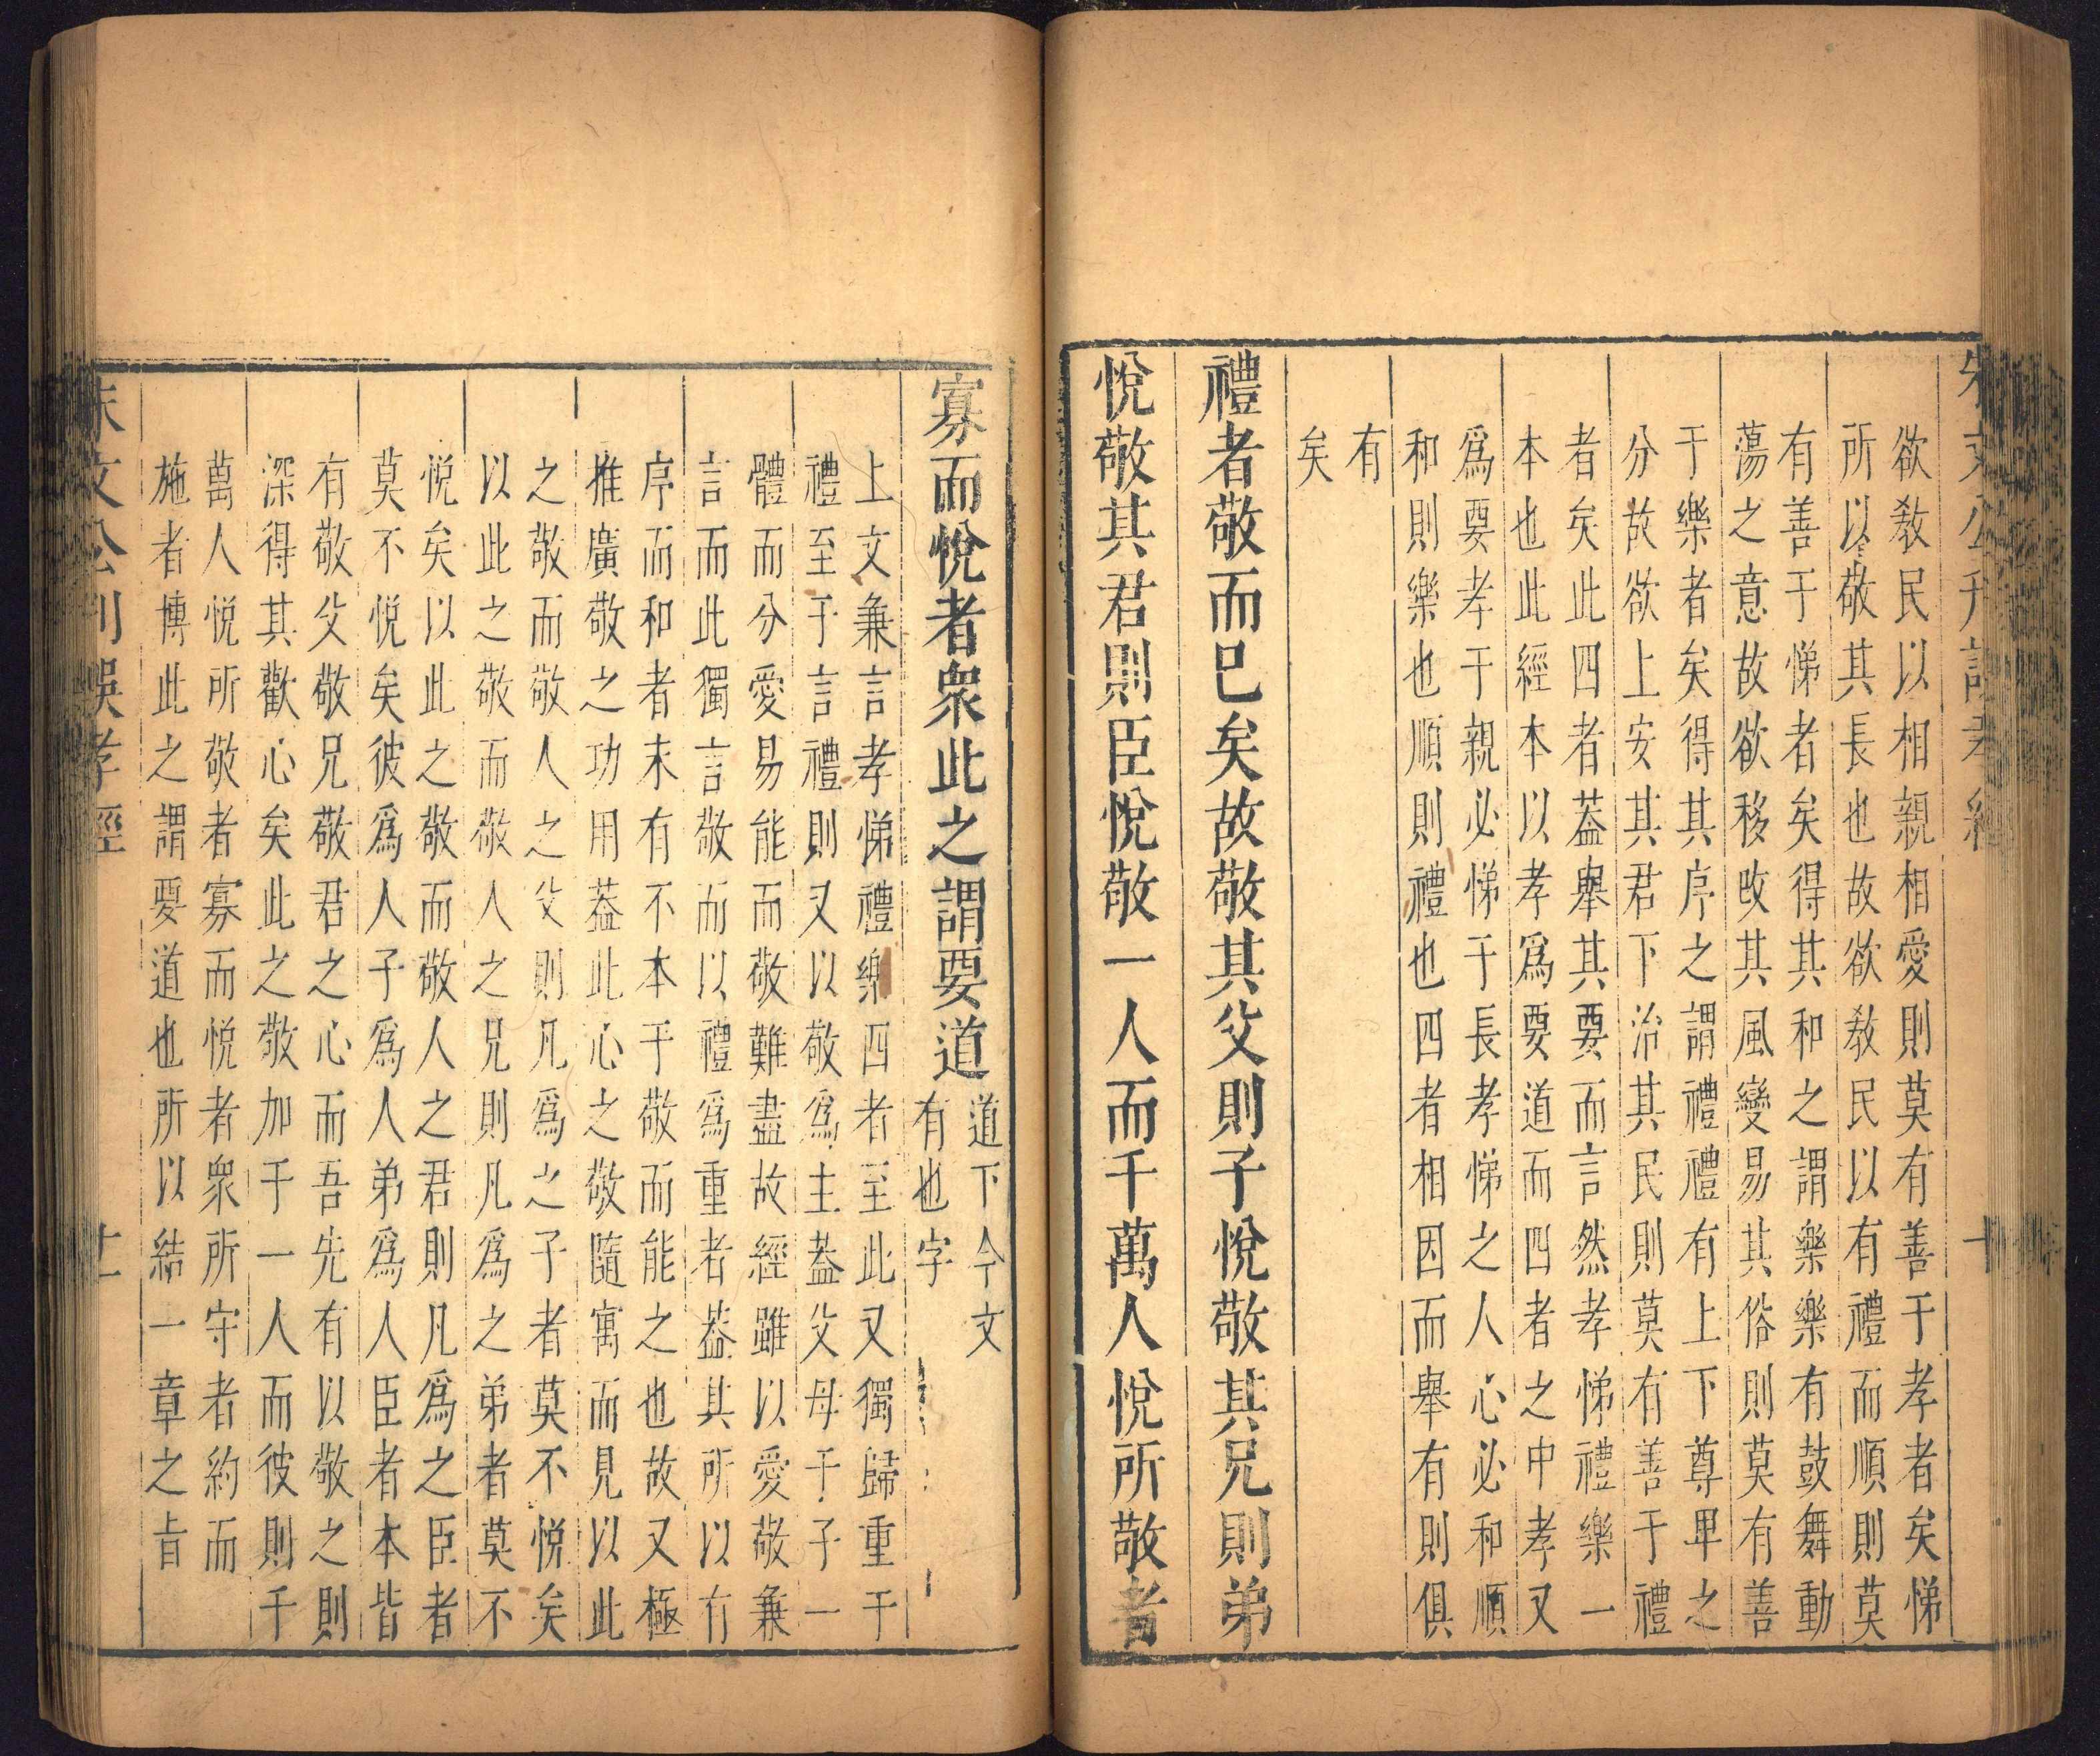 欲敎民以相親相愛則莫有善于孝者矣悌
所以敬其長也故欲敎民以有禮而順則莫
有善于悌者矣得其和之謂樂樂有鼓舞動
蕩之意故欲移改其風變易其俗則莫有善
于樂者矣得其序之謂禮禮有上下尊卑之
分故欲上安其君下治其民則莫有善于禮
者矣此四者葢舉其要而言然孝悌禮樂一
本也此經本以孝爲要道而四者之中孝又
爲要孝于親必悌于長孝悌之人心必和順
和則樂也順則禮也四者相因而舉有則俱
有
矣
禮者敬而巳矣故敬其父則子悅敬其兄則弟
悅敬其君則臣悅敬一人而千萬人悅所敬者
寡而悅者衆此之謂要道
道下今文
有也字
上文兼言孝悌禮樂四者至此又獨歸重于
禮至于言禮則又以敬爲主葢父母于子一
體而分愛易能而敬難盡故經雖以愛敬兼
言而此獨言敬而以禮爲重者葢其所以有
序而和者未有不本于敬而能之也故又極
推廣敬之功用葢此心之敬隨寓而見以此
之敬而敬人之父則凡爲之子者莫不悅矣
以此之敬而敬人之兄則凡爲之弟者莫不
悅矣以此之敬而敬人之君則凡爲之臣者
莫不悅矣彼爲人子爲人弟爲人臣者本皆
有敬父敬兄敬君之心而吾先有以敬之則
深得其歡心矣此之敬加于一人而彼則千
萬人悅所敬者寡而悅者衆所守者約而
施者博此之謂要道也所以結一章之旨
朱文公刋誤孝經
十一